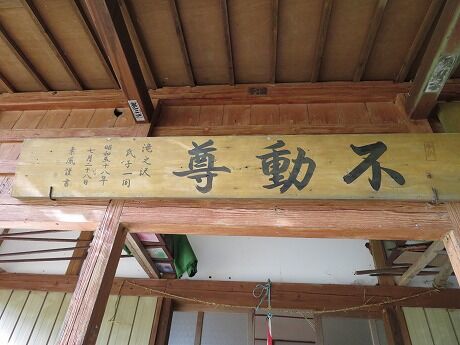 不動尊
滝之沢
氏子一同
昭和五十八年
七月二十八日
素風謹書